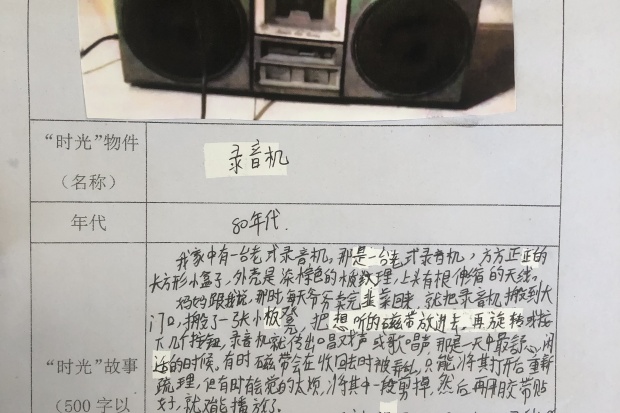 “时光”物件
（名称）
录音机
年代
80年代.
“时光”故事
（500字以
我家中有一台老式录音机。那是一台老式录音机，方方正正的
长方形小盒子，外壳是深棕色的木板纹理，上头有根伸缩的天线。
妈妈跟我说，那时每天爷爷卖完韭菜回来，就把录音机搬到大
门口，搬了一张小板凳，把想听的磁带放进去。再旋转或按
下几个按钮，录音机就传出唱戏声或歌唱声，那是一天中最舒心、闲
适的时候。有时磁带会在收回去时被弄乱，只能将其打开后重新
疏理，但有时候觉的太烦，将其中一段剪掉，然后再用胶带贴
好，就又能播放了。